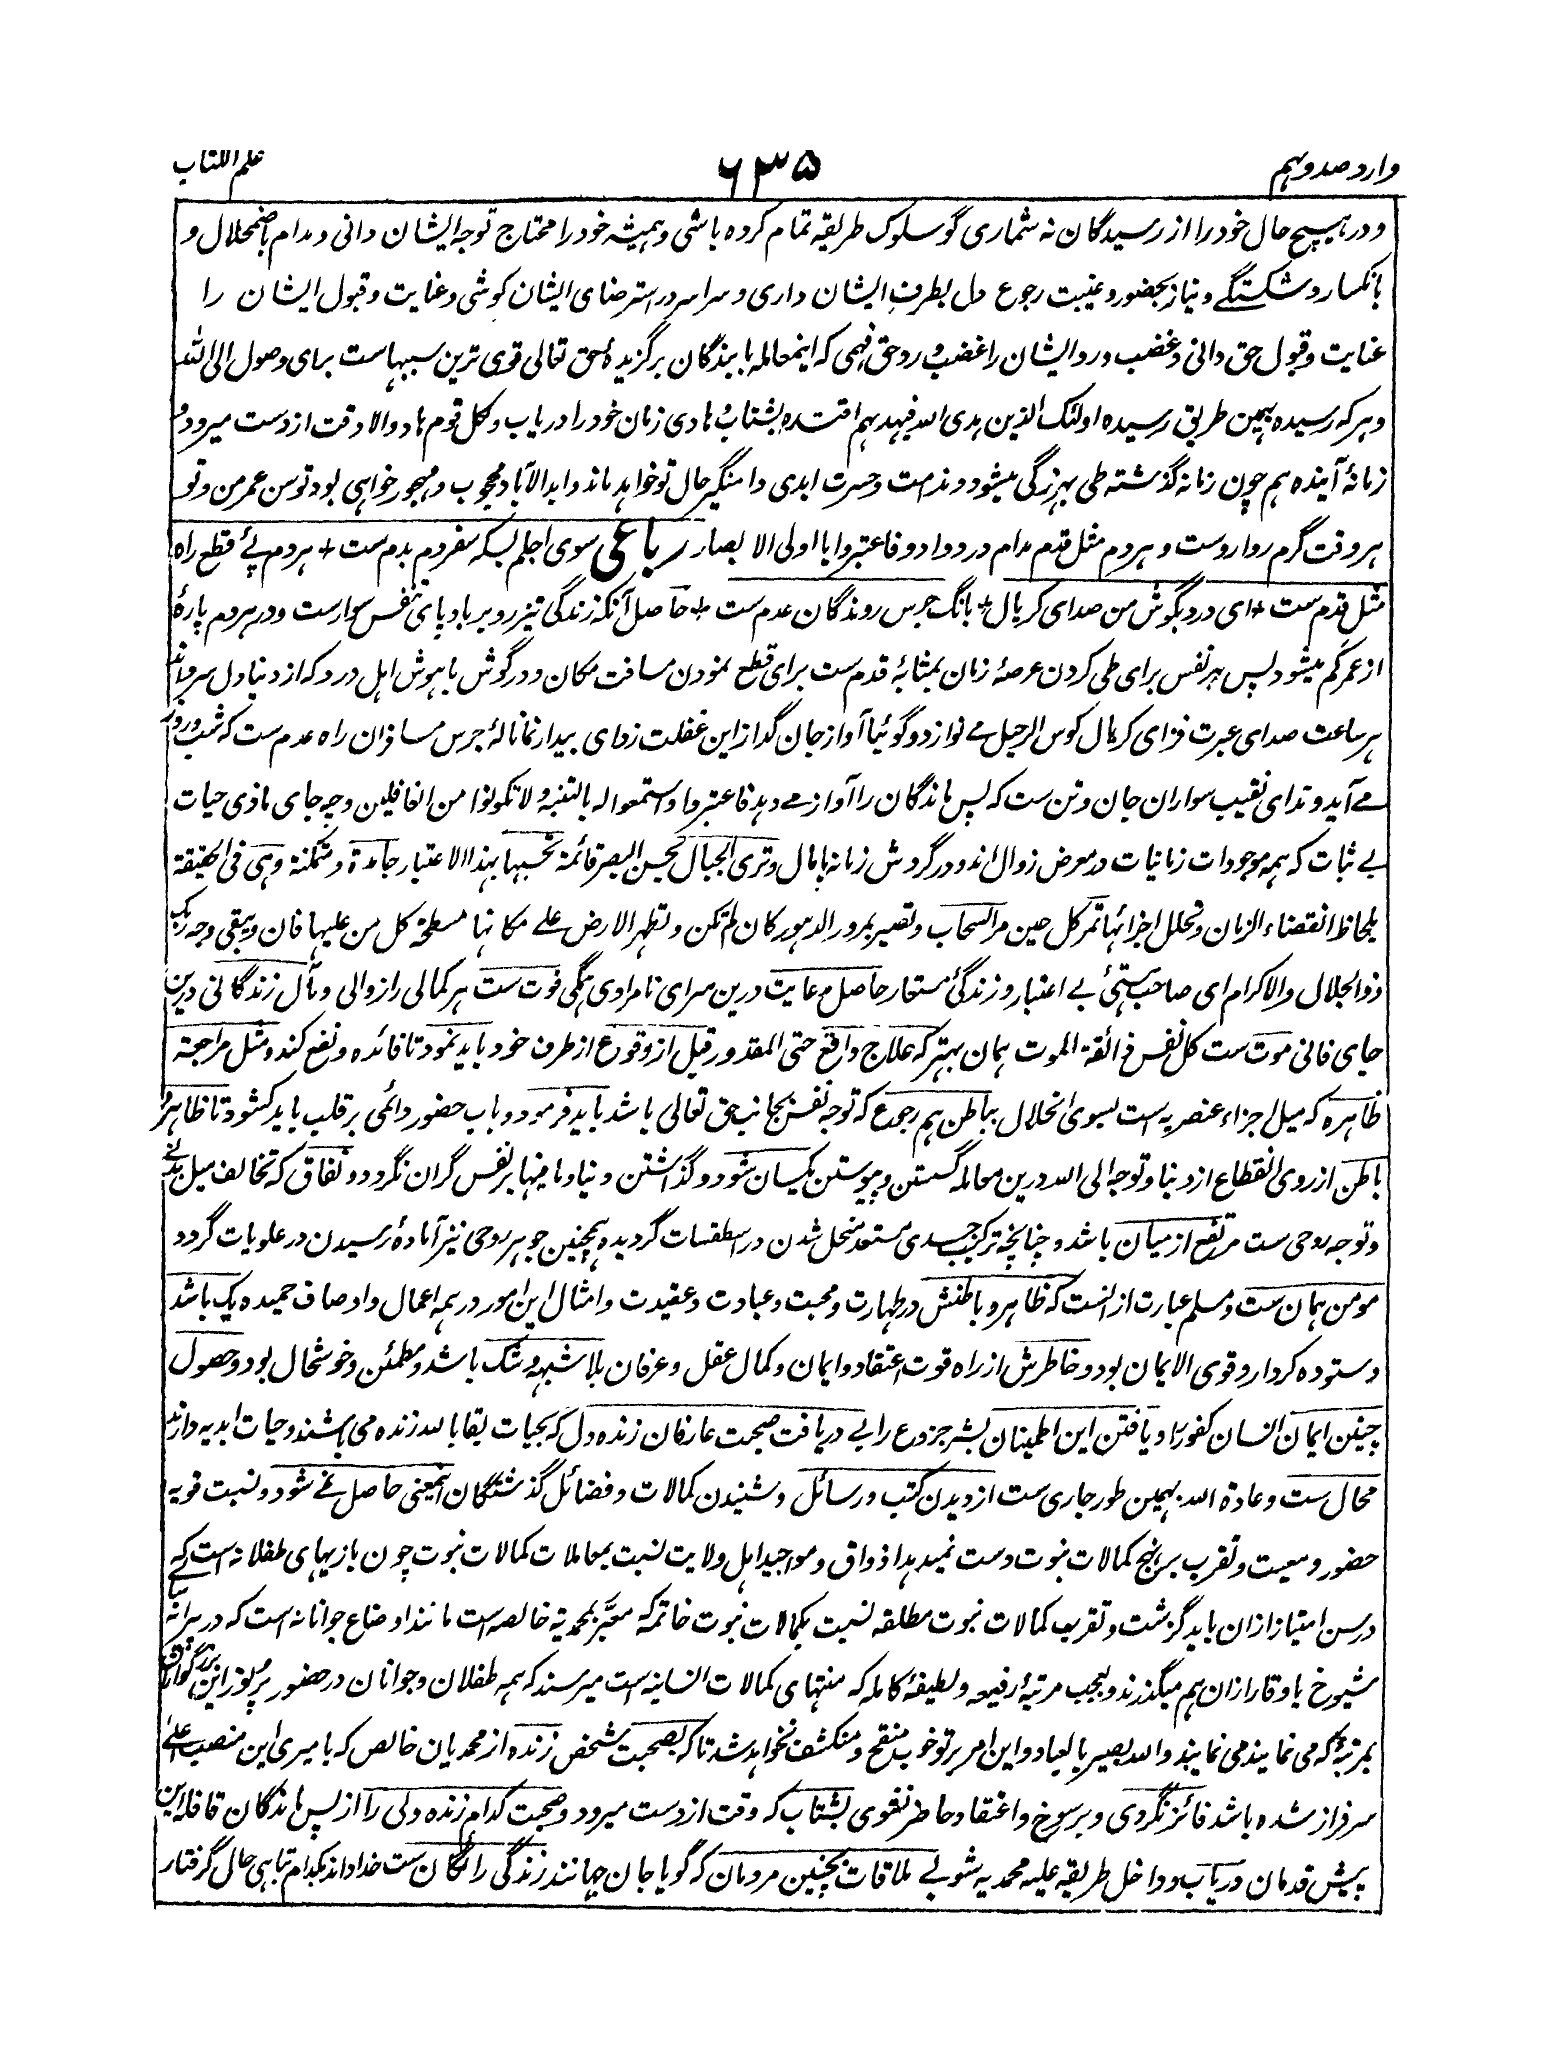 وارد صد و نهم ۶۳۵ علم الکتاب
و در هیچ حال خود را از رسیدگان نه شماری گو سلوک طریقه تمام کرده باشی و همیشه خود را محتاج توجه ایشان دانی و مدام باضمحلال و
بانکسار و شکستگے و نیاز بحضور و غیبت رجوع دل بطرف ایشان داری و سراسر در استرضای ایشان کوشی و عنایت و قبول ایشان را
عنایت و قبول حق دانی و غضب و رد ایشان را غضب و رد حق فهمی که اینمعامله با بندگان برگزیدۀ حق تعالی قوی ترین سببهاست برای وصول الی الله
و هر که رسیده بهمین طریق رسیده اولئک الذین هدی الله فبهدیهم اقتده بشتاب و هادی زمان خود را دریاب و لکل قوم هاد و الا وقت از دست میرود و
زمانۀ آینده هم چون زمانه گذشته طی بهرزگی میشود و ندامت و حسرت ابدی دامنگیر حال تو خواهد ماند و ابد الآباد محجوب و مهجور خواهی بود توسن عمر من و تو
هر وقت گرم روارو ست و هر دم مثل قدم مدام در دوادو فاعتبروا یا اولی الابصار رباعی سوی اجلم بسکه سفر دم بدم ست + هر دم پۓ قطع راه
مثل قدم ست + ای درد بگوش من صدای گریال + بانگ جرس روندگان عدم ست + حاصل آنکه زندگی تیز رو بر باد پای نفس سوار ست و در هر دم پارۀ
از عمر کم میشود پس هر نفس برای طی کردن عرصۀ زمان بمثابۀ قدم ست برای قطع نمودن مسافت مکان و در گوش با هوش اهل درد که از دنیا دل سرد اند
هر ساعت صدای عبرت فزای گریال کوس الرحیل مے نوازد و گوئیا آواز جان گداز این غفلت زدای بیدار نما نالۀ جرس مسافران راه عدم ست که شب و روز
مے آید و ندای نقیب سواران جان و تن ست که پس ماندگان را آواز مے دهد فاعتبروا و استمعوا له بالتنبه و لا تکونوا من الغافلین و چه جای ماذی حیات
بے ثبات که همه موجودات زمانیات در معرض زوال اند و در گردش زمانه پامال و تری الجبال بحس البصر قائمة تحسبها بهذا الاعتبار جامدة و متمکنة و هی فی الحقیقة
بلحاظ انقضاء الزمان و تحلل اجزائها تمر کل حین مر السحاب و تصیر بمرور الدهور کان لم تکن و تظهر الارض علے مکانها مسطحة کل من علیها فان و یبقی وجه ربک
ذو الجلال و الاکرام ای صاحب هستیٔ بے اعتبار و زندگیٔ مستعار حاصل معایت درین سرای نامرادی همگی فوت ست هر کمالی را زوالی و مآل زندگانی درین
جای فانی موت ست کل نفس ذائقة الموت همان بهتر که علاج واقع حتی المقدور قبل از وقوع از طرف خود باید نمود تا فائده و نفع کند و مثل مراجعة
ظاهره که میل اجزاء عنصریه است بسوی انحلال بباطن هم رجوع که توجه نفس بجانب حق تعالی باشد باید فرمود و باب حضور دائمی بر قلب باید کشود تا ظاهر و
باطن از روی انقطاع از دنیا و توجه الی الله درین معامله گسستن و پیوستن یکسان شود و گذاشتن دنیا و مافیها بر نفس گران نگردد و نفاق که تخالف میل بدنے
و توجه روحی ست مرتفع از میان باشد و چنانچه ترکیب جسدی مستعد منحل شدن در اسطقسات گردیده همچنین جوهر روحی نیز آمادۀ رسیدن در علویات گردد
مومن همان ست و مسلم عبارت از انست که ظاهر و باطنش در طهارت و محبت و عبادت و عقیدت و امثال این امور در همه اعمال و اوصاف حمیده یک باشد
و ستوده کردار و قوی الایمان بود و خاطرش از راه قوت اعتقاد و ایمان و کمال عقل و عرفان بلا شبهه و شک باشد و مطمئن و خوشحال بود و حصول
چنین ایمان انسان کفور را و یافتن این اطمینان بشر جزوع را بے دریافت صحبت عارفان زنده دل که بحیات بقا بالله زنده می باشند و حیات ابدیه دارند
محال ست و عادة الله بهمین طور جاری ست از دیدن کتب و رسائل و شنیدن کمالات و فضائل گذشتگان اینمعنی حاصل نمے شود و نسبت قویه
حضور و معیت و تقرب بر نهج کمالات نبوت دست نمیدهد اذواق و مواجید اهل ولایت نسبت بمعاملات کمالات نبوت چون بازیهای طفلانه است که
در سن امتیاز ازان باید گزشت و تقرب کمالات نبوت مطلقه نسبت بکمالات نبوت خاتمه که معبّر بمحمدیة خالصه است مانند اوضاع جوانانه است که در پیرانه
شیوخ با وقار ازان هم میگذرند و بمرتبۀ رفیعه و لطیفۀ کامله که منتهای کمالات انسانیه است میرسند که همه طفلان و جوانان در حضور پر نور این بزرگواران
بمرتبۀ که می نمایند می نمایند و الله بصیر بالعباد و این امر بر تو خوب منقح و منکشف نخواهد شد تا که بصحبت شخص زنده از محمدیان خالص که بامیری این منصب اعلیٰ
سرفراز شده باشد فائز نگردی و برسوخ و اعتقاد حاضر نشوی بشتاب که وقت از دست میرود و صحبت کدام زنده دلی را از پس ماندگان قافلۀ این
پیش قدمان دریاب و داخل طریقه علیه محمدیه شو بے ملاقات همچنین مردمان که گویا جان جهانند زندگی رائگان ست خدا داند بکدام تباهی حال گرفتار